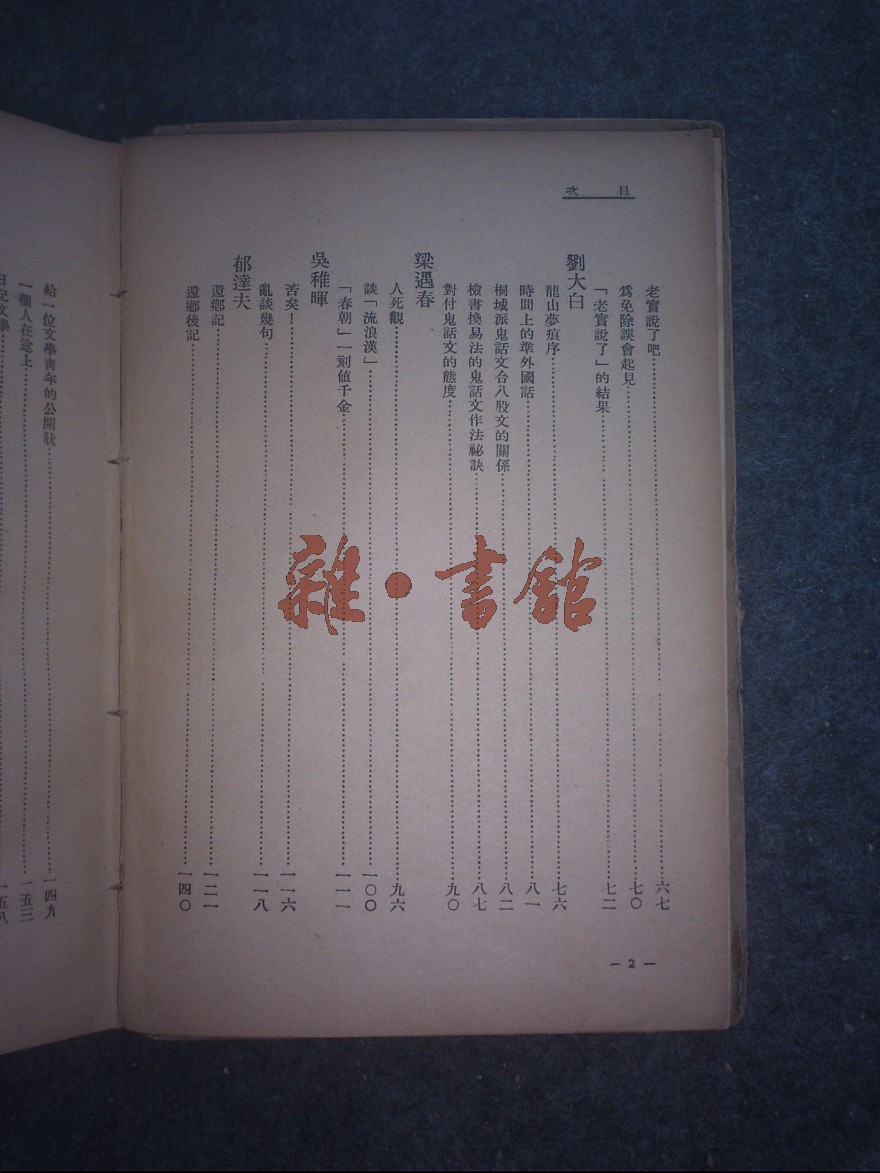 目次
老實說了吧 六七
爲免除誤會起見 七〇
「老實說了」的結果 七二
劉大白
龍山夢痕序 七六
時間上的準外國話 八一
桐城派鬼話文合八股文的關係 八二
檢書換易法的鬼話文作法祕訣 八七
對付鬼話文的態度 九〇
梁遇春
人死觀 九六
談「流浪漢」 一〇〇
「春朝」一刻値千金 一一一
吳稚暉
苦矣！ 一一六
亂談幾句 一一八
郁達夫
還鄉記 一二一
還鄉後記 一四〇
— 2 —
給一位文學靑年的公開狀 一四九
一個人在途上 一五三
日記文學 一五八
雜·書館